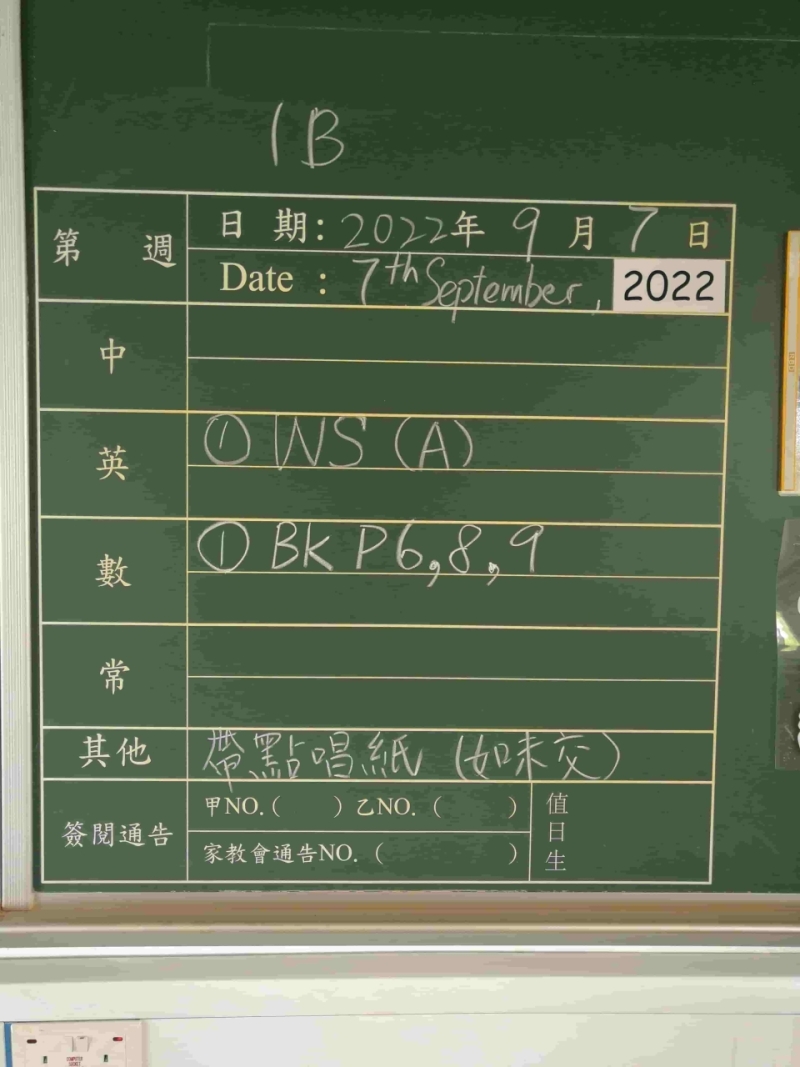 1B
第 週
日 期：2022年 9 月 7 日
Date : 7th September, 2022
中
英 ① WS (A)
數 ① BK P6,8,9
常
其他 帶點唱紙 (如未交)
簽閱通告
甲NO.( ) 乙NO. ( )
家教會通告NO. ( )
值日生